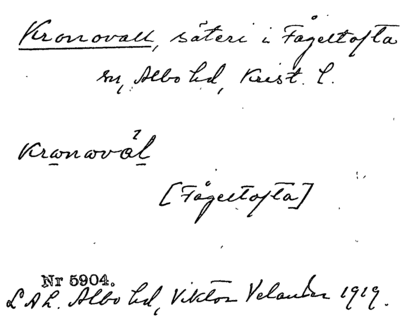 Kronovall, säteri i Fågeltofta
sn, Albo hd, Krist. l.
Kranavål
[Fågeltofta]
Nr 5904.
LAL. Albo hd, Viktor Velander 1919.